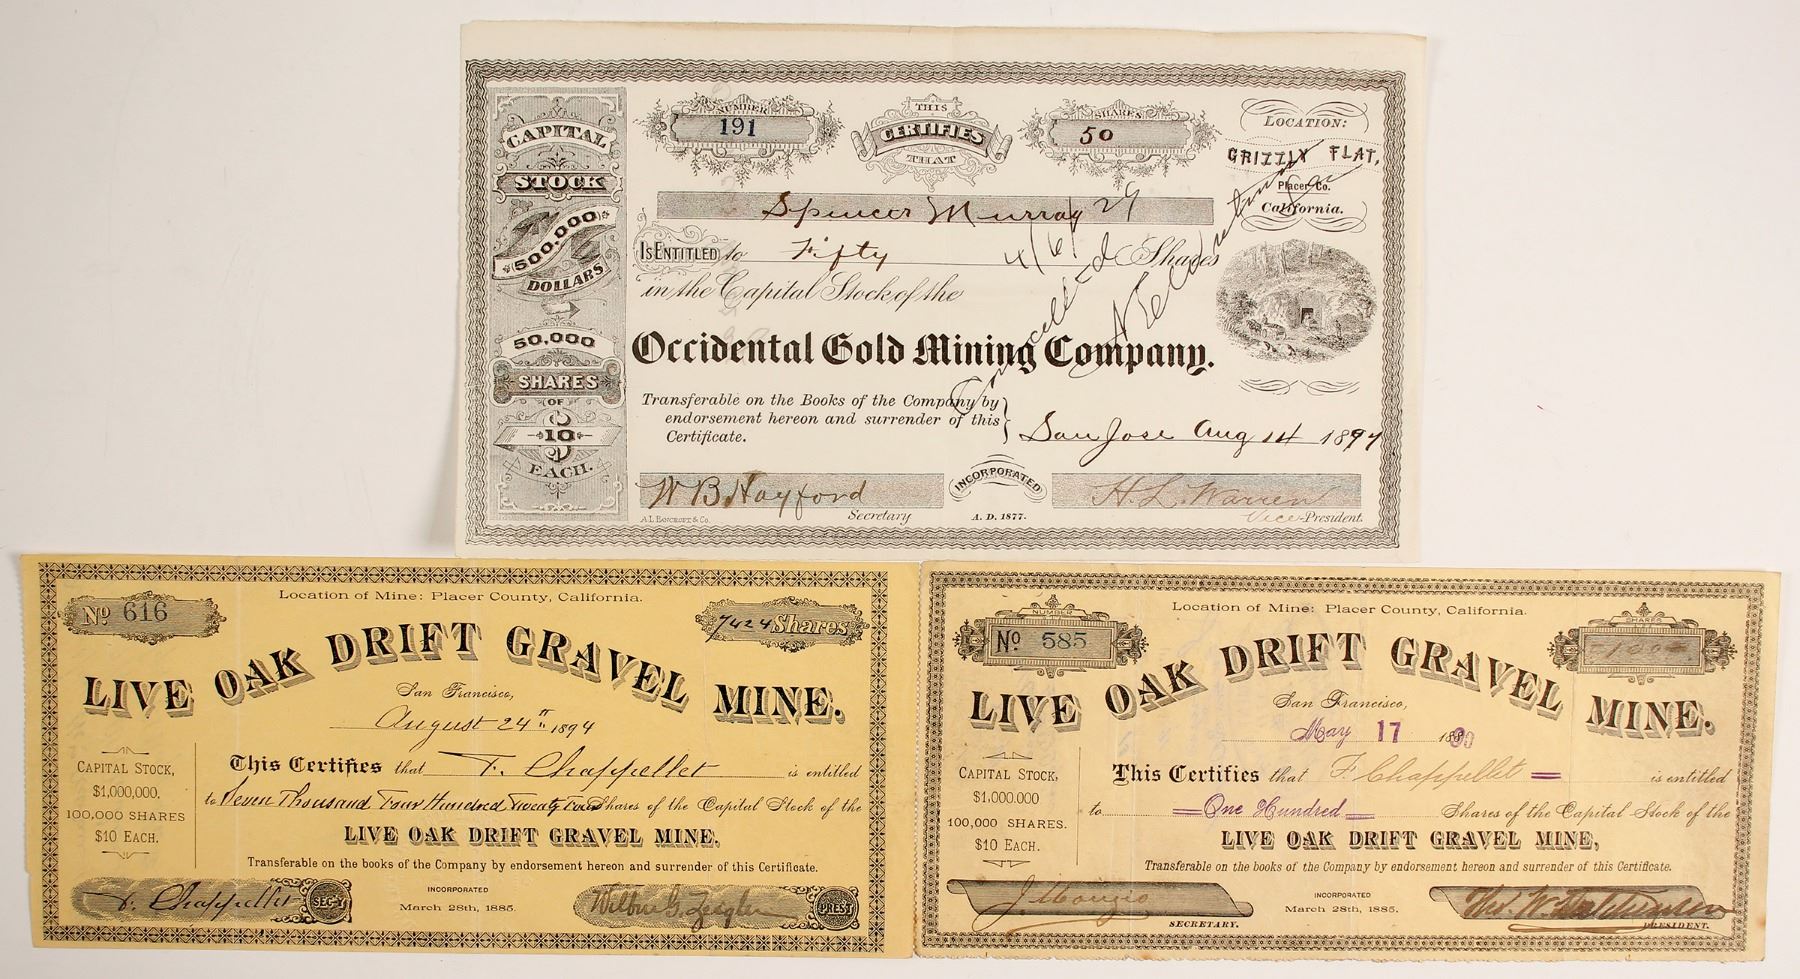 CAPITAL
STOCK
$500,000
DOLLARS
50,000
SHARES
OF
$10
EACH.
NUMBER
191
THIS
CERTIFIES
THAT
SHARES
50
LOCATION:
GRIZZLY FLAT,
Placer Co.
California.
Spencer Murray
IS ENTITLED to Fifty Shares
in the Capital Stock of the
Occidental Gold Mining Company.
Cancelled
Transferable on the Books of the Company by
endorsement hereon and surrender of this
Certificate.
San Jose Aug 14 1897
W B Hayford
Secretary
INCORPORATED
A. D. 1877.
H. L. Warren
Vice-President.
A.L. BANCROFT & CO.
Location of Mine: Placer County, California.
No 616
7424 Shares
LIVE OAK DRIFT GRAVEL MINE.
San Francisco,
August 24th 1894
CAPITAL STOCK,
$1,000,000,
100,000 SHARES
$10 EACH.
This Certifies that F. Chappellet is entitled
to Seven Thousand Four Hundred Twenty Four Shares of the Capital Stock of the
LIVE OAK DRIFT GRAVEL MINE.
Transferable on the books of the Company by endorsement hereon and surrender of this Certificate.
F. Chappellet
SEC-Y
INCORPORATED
March 28th, 1885.
Wilbur G. Zeigler
PREST
Location of Mine: Placer County, California.
NUMBER
No 585
SHARES
100
LIVE OAK DRIFT GRAVEL MINE.
San Francisco,
May 17
CAPITAL STOCK,
$1,000.000
100,000 SHARES.
$10 EACH.
This Certifies that F. Chappellet is entitled
to One Hundred Shares of the Capital Stock of the
LIVE OAK DRIFT GRAVEL MINE,
Transferable on the books of the Company by endorsement hereon and surrender of this Certificate.
SECRETARY.
INCORPORATED
March 28th, 1885.
PRESIDENT.